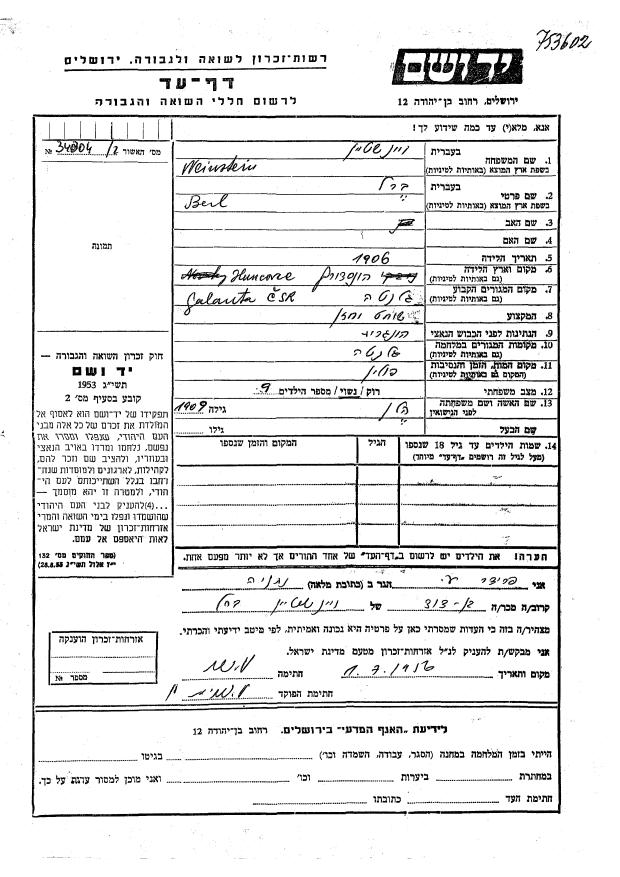 753602
רשות-זכרון לשואה ולגבורה. ירושלים
דף-עד
לרשום חללי השואה והגבורה
יד ושם
ירושלים, רחוב בן-יהודה 12
אנא, מלא(י) עד כמה שידוע לך!
מס' האשור
№
תמונה
1. שם המשפחה
בעברית
ויינשטיין
בשפת ארץ המוצא (באותיות לטיניות)
Weinstein
2. שם פרטי
בעברית
ברל
בשפת ארץ המוצא (באותיות לטיניות)
Berl
3. שם האב
4. שם האם
5. תאריך הלידה
1906
6. מקום וארץ הלידה
(גם באותיות לטיניות)
Huncovce
7. מקום המגורים הקבוע
(גם באותיות לטיניות)
גלנטה
Galanta ČSR
8. המקצוע
שוחט וחזן
9. הנתינות לפני הכבוש הנאצי
הונגרית
10. מקומות המגורים במלחמה
(גם באותיות לטיניות)
גלנטה
11. מקום המות, הזמן והנסיבות
(המקום גם באותיות לטיניות)
פולין
12. מצב משפחתי
רווק / נשוי / מספר הילדים 9
13. שם האשה ושם משפחתה
לפני הנישואין
גילה 1909
שם הבעל
גילו
14. שמות הילדים עד גיל 18 שנספו
(מעל לגיל זה רושמים "דף-עד" מיוחד)
הגיל
המקום והזמן שנספו
חוק זכרון השואה והגבורה —
יד ושם
תשי"ג 1953
קובע בסעיף מס' 2
תפקידו של יד-ושם הוא לאסוף אל
המולדת את זכרם של כל אלה מבני
העם היהודי, שנפלו ומסרו את
נפשם, נלחמו ומרדו באויב הנאצי
ובעוזריו, ולהציב שם וזכר להם,
לקהילות, לארגונים ולמוסדות שנח־
רבו בגלל השתייכותם לעם הי־
הודי, ולמטרה זו יהא מוסמך —
...(4) להעניק לבני העם היהודי
שהושמדו ונפלו בימי השואה והמרי
אזרחות-זכרון של מדינת ישראל
לאות היאספם אל עמם.
(ספר החוקים מס' 132
י"ז אלול תשי"ג 28.8.53)
הערה! את הילדים יש לרשום ב"דף-העד" של אחד ההורים אך לא יותר מפעם אחת.
אני
הגר ב (כתובת מלאה) נתניה
קרוב/ה מכר/ה בן-דוד של ויינשטיין ברל
מצהיר/ה בזה כי העדות שמסרתי כאן על פרטיה היא נכונה ואמיתית, לפי מיטב ידיעתי והכרתי.
אני מבקש/ת להעניק לנ"ל אזרחות-זכרון מטעם מדינת ישראל.
מקום ותאריך
חתימה
חתימת הפוקד
אזרחות-זכרון הוענקה
מספר №
לידיעת "האגף המדעי" בירושלים. רחוב בן-יהודה 12
הייתי בזמן המלחמה במחנה (הסגר, עבודה, השמדה וכו')
בגיטו
במחתרת
ביערות
וכו'
ואני מוכן למסור עדות על כך.
חתימת העד
כתובתו